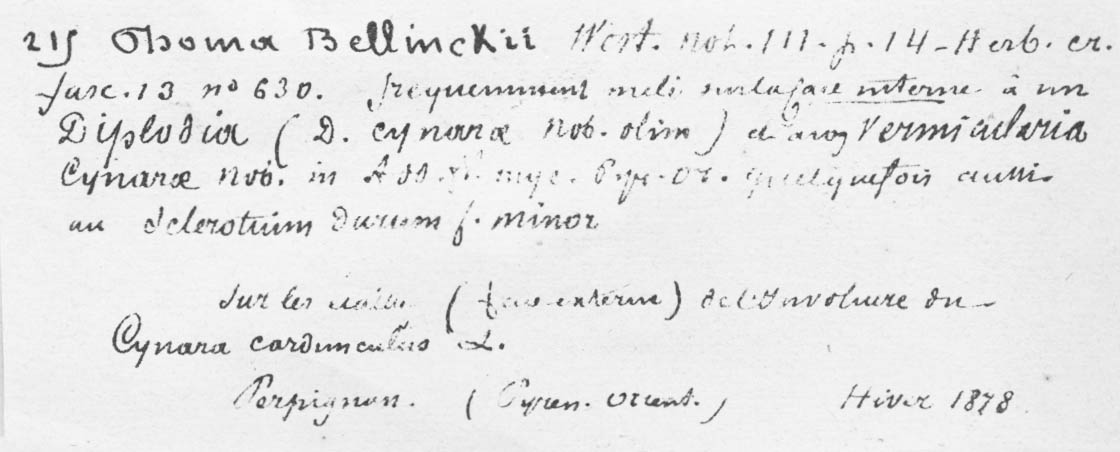 215 Phoma Bellinckii West. not. III. p. 14 - Herb. cr.
fasc. 13 nº 630. frequemment mélé sur la face interne à un
Diplodia ( D. cynaræ Nob. olim ) et avec Vermicularia
Cynaræ Nob. in Add. fl. myc. Pyr. Or. quelquefois aussi
au Sclerotium durum f. minor
Sur les écailles ( face externe ) de l'Involucre du
Cynara cardunculus L.
Perpignan. ( Pyren. orient. ) Hiver 1878